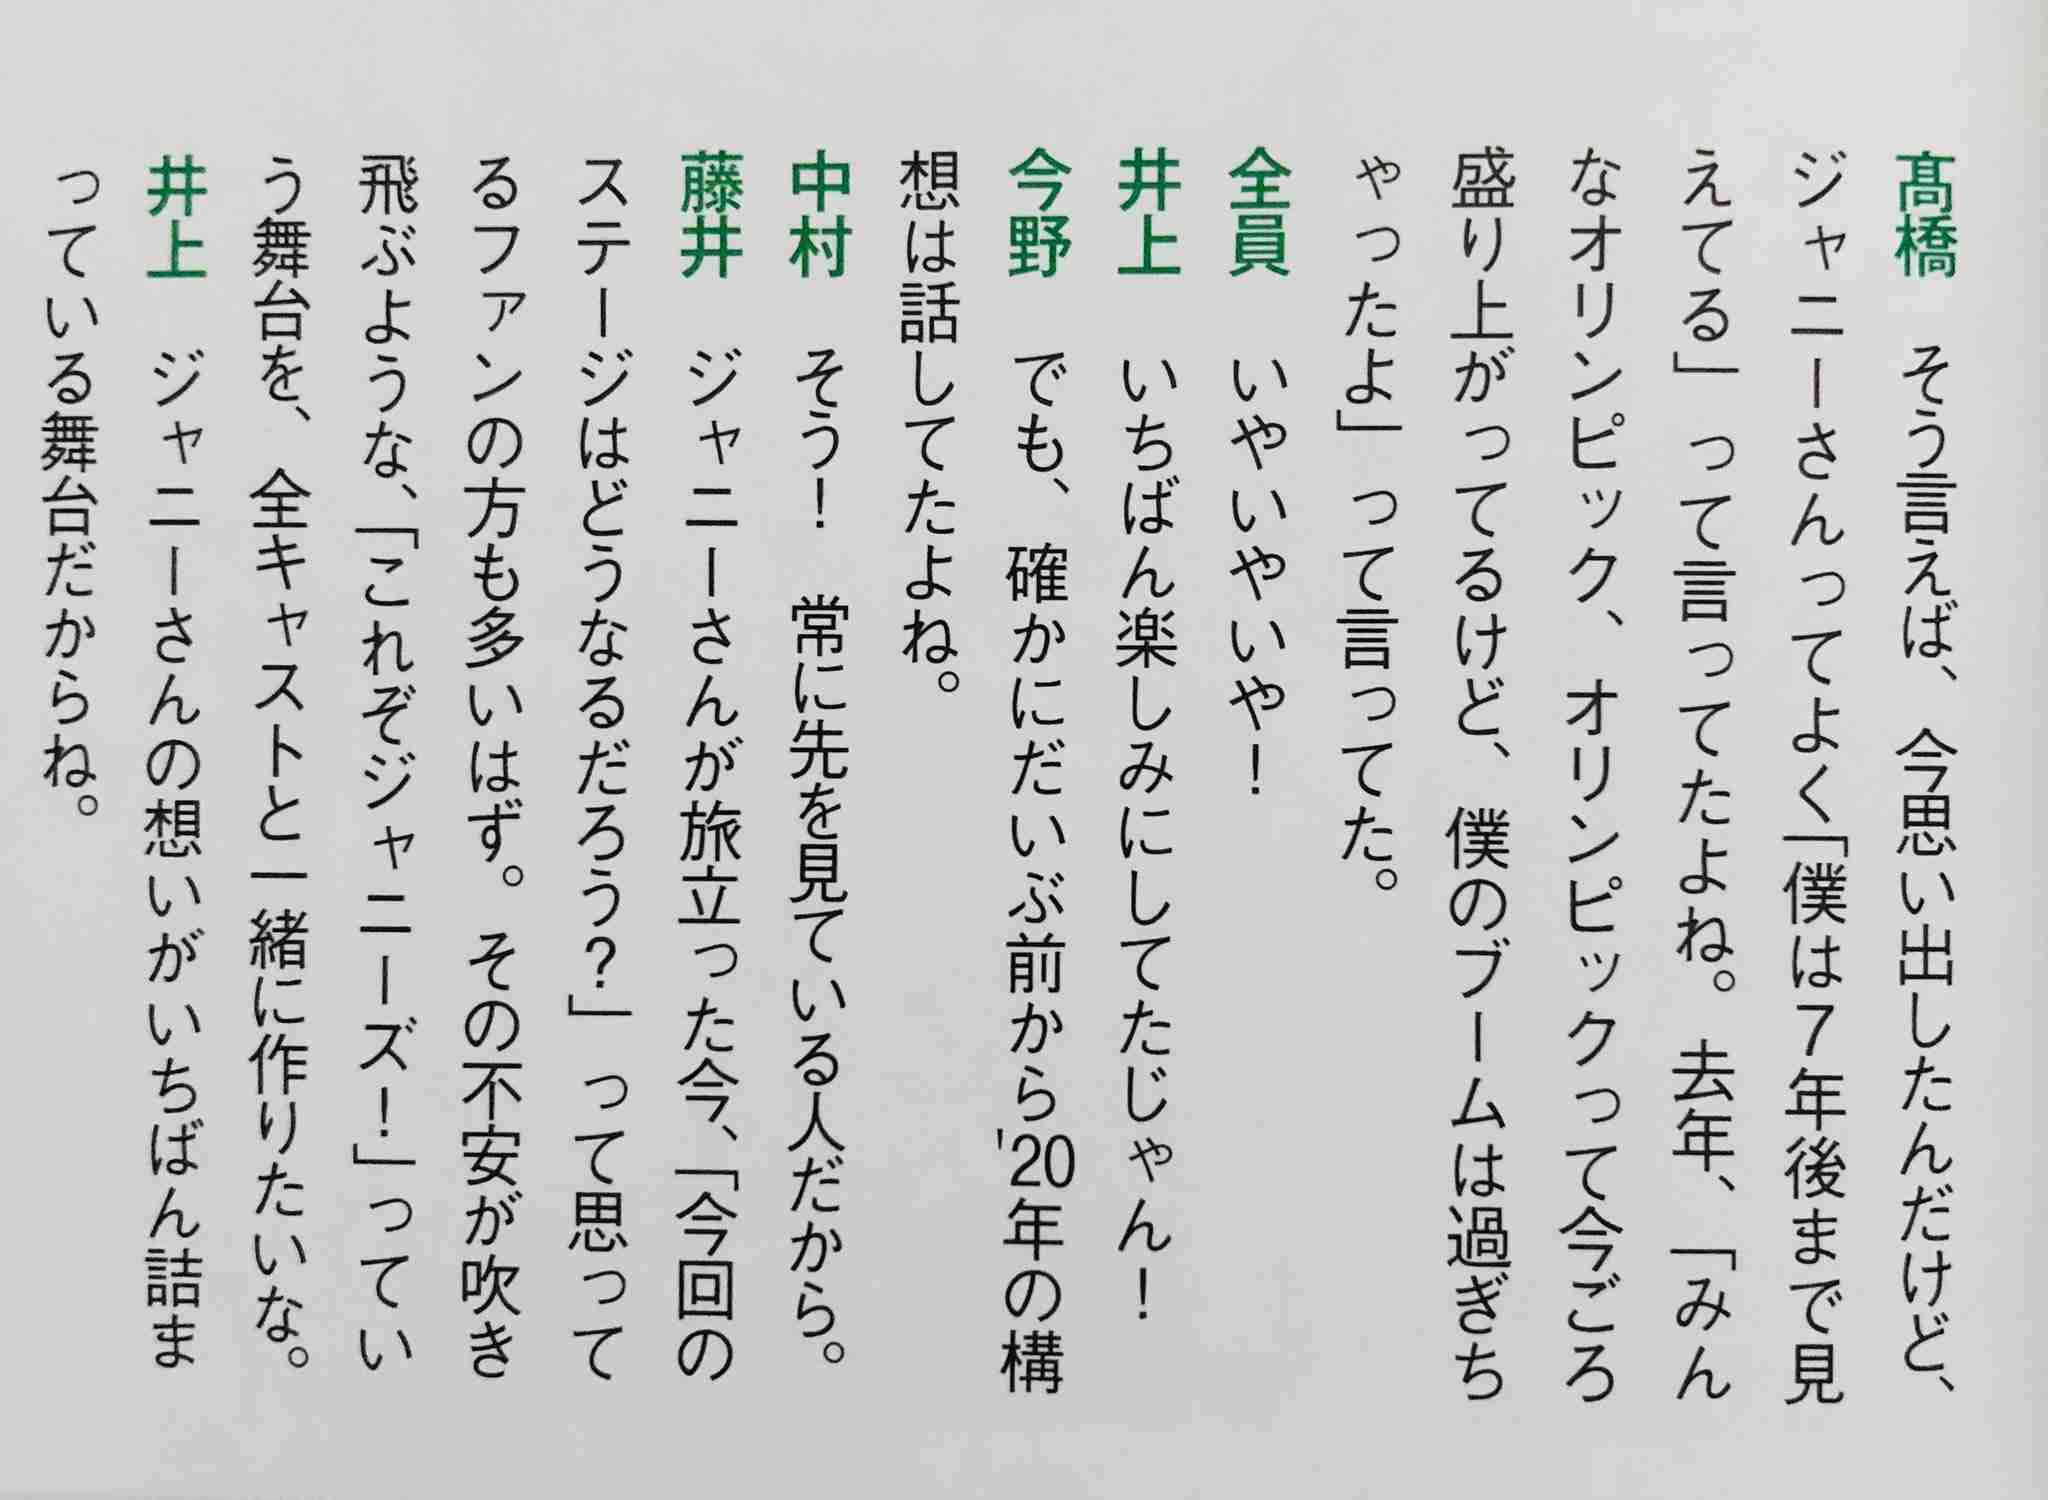 髙橋　そう言えば、今思い出したんだけど、
ジャニーさんってよく「僕は7年後まで見
えてる」って言ってたよね。去年、「みん
なオリンピック、オリンピックって今ごろ
盛り上がってるけど、僕のブームは過ぎち
ゃったよ」って言ってた。
全員　いやいやいや！
井上　いちばん楽しみにしてたじゃん！
今野　でも、確かにだいぶ前から'20年の構
想は話してたよね。
中村　そう！　常に先を見ている人だから。
藤井　ジャニーさんが旅立った今、「今回の
ステージはどうなるだろう？」って思って
るファンの方も多いはず。その不安が吹き
飛ぶような、「これぞジャニーズ！」ってい
う舞台を、全キャストと一緒に作りたいな。
井上　ジャニーさんの想いがいちばん詰ま
っている舞台だからね。